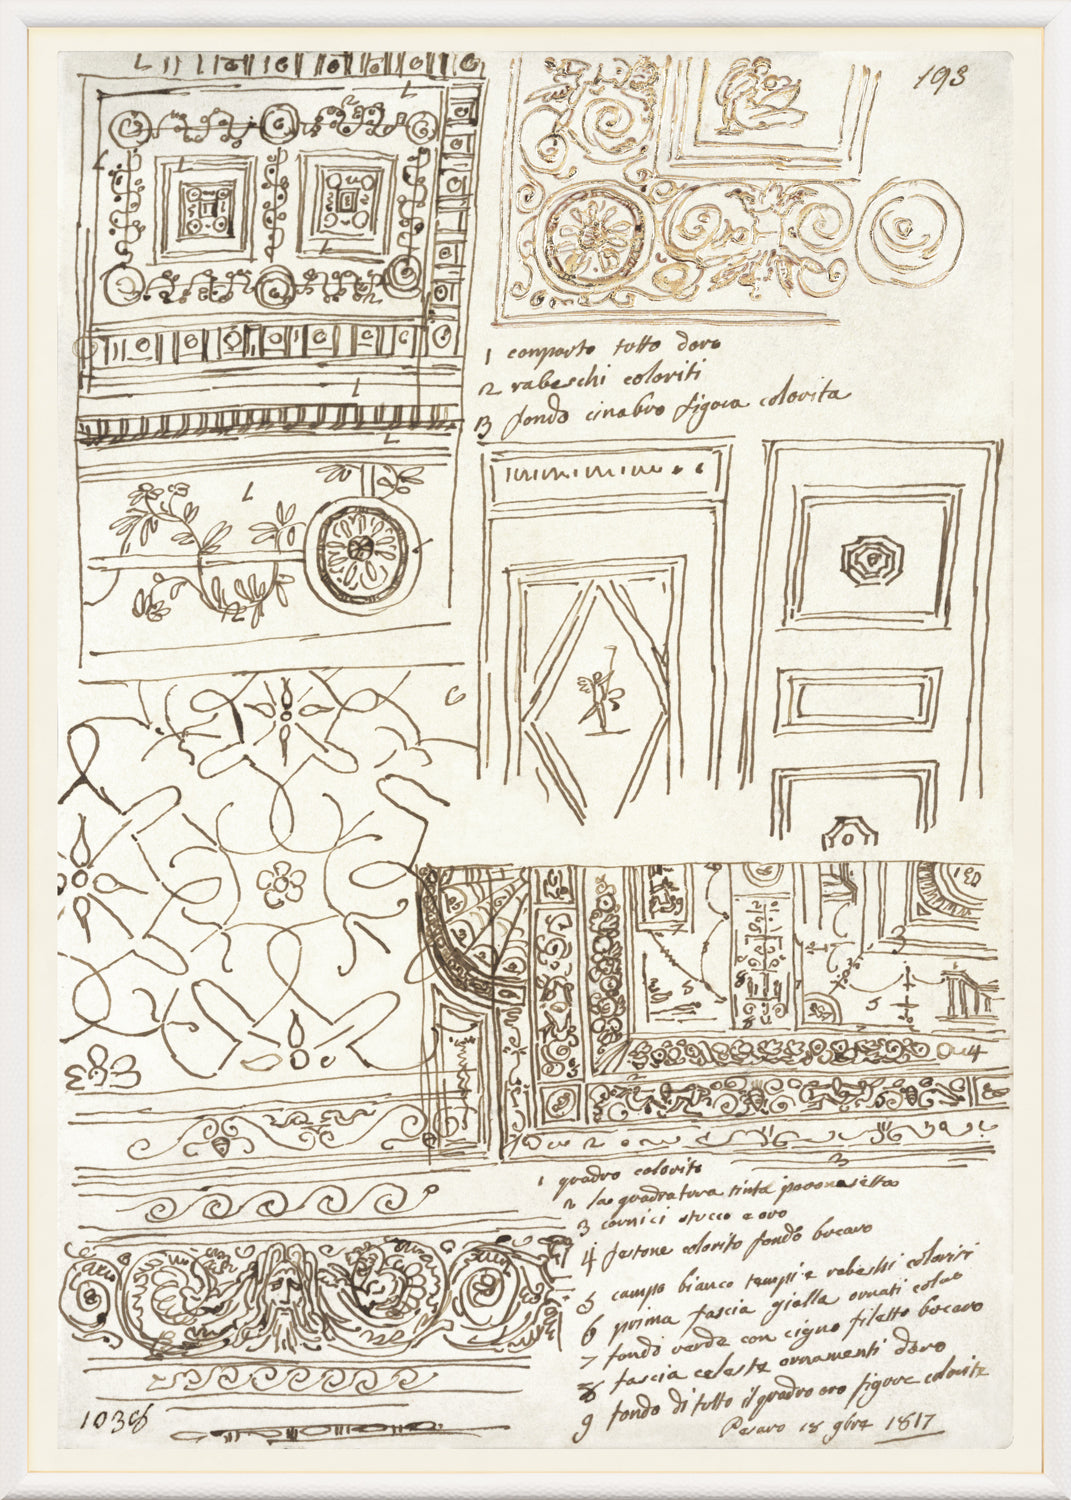 193
1 conparto tutto doro
2 rabeschi coloriti
3 fondo cinabro figura colorita
1 quadro colorito
2 la quadratura tinta pavonasetta
3 cornici stucco e oro
4 festone colorito fondo bucaro
5 campo bianco tempi e rabeschi coloriti
6 prima fascia gialla ornati
7 fondi verde con cigno filetto bucaro
8 fascia celeste ornamenti doro
9 fondo di tutto il quadro oro figure colorite
Pesaro 18 9bre 1817